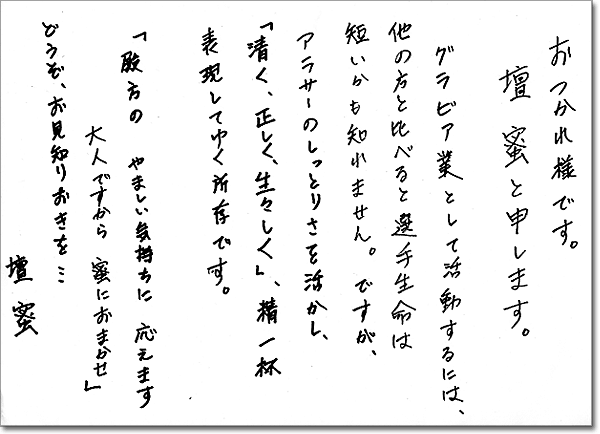 おつかれ様です。
壇蜜と申します。
グラビア業として活動するには、
他の方と比べると選手生命は
短いかも知れません。ですが、
アラサーのしっとりさを活かし、
「清く、正しく、生々しく」、精一杯
表現してゆく所存です。
「殿方の やましい気持ちに 応えます
大人ですから 蜜におまかせ」
どうぞ、お見知りおきを…
壇蜜